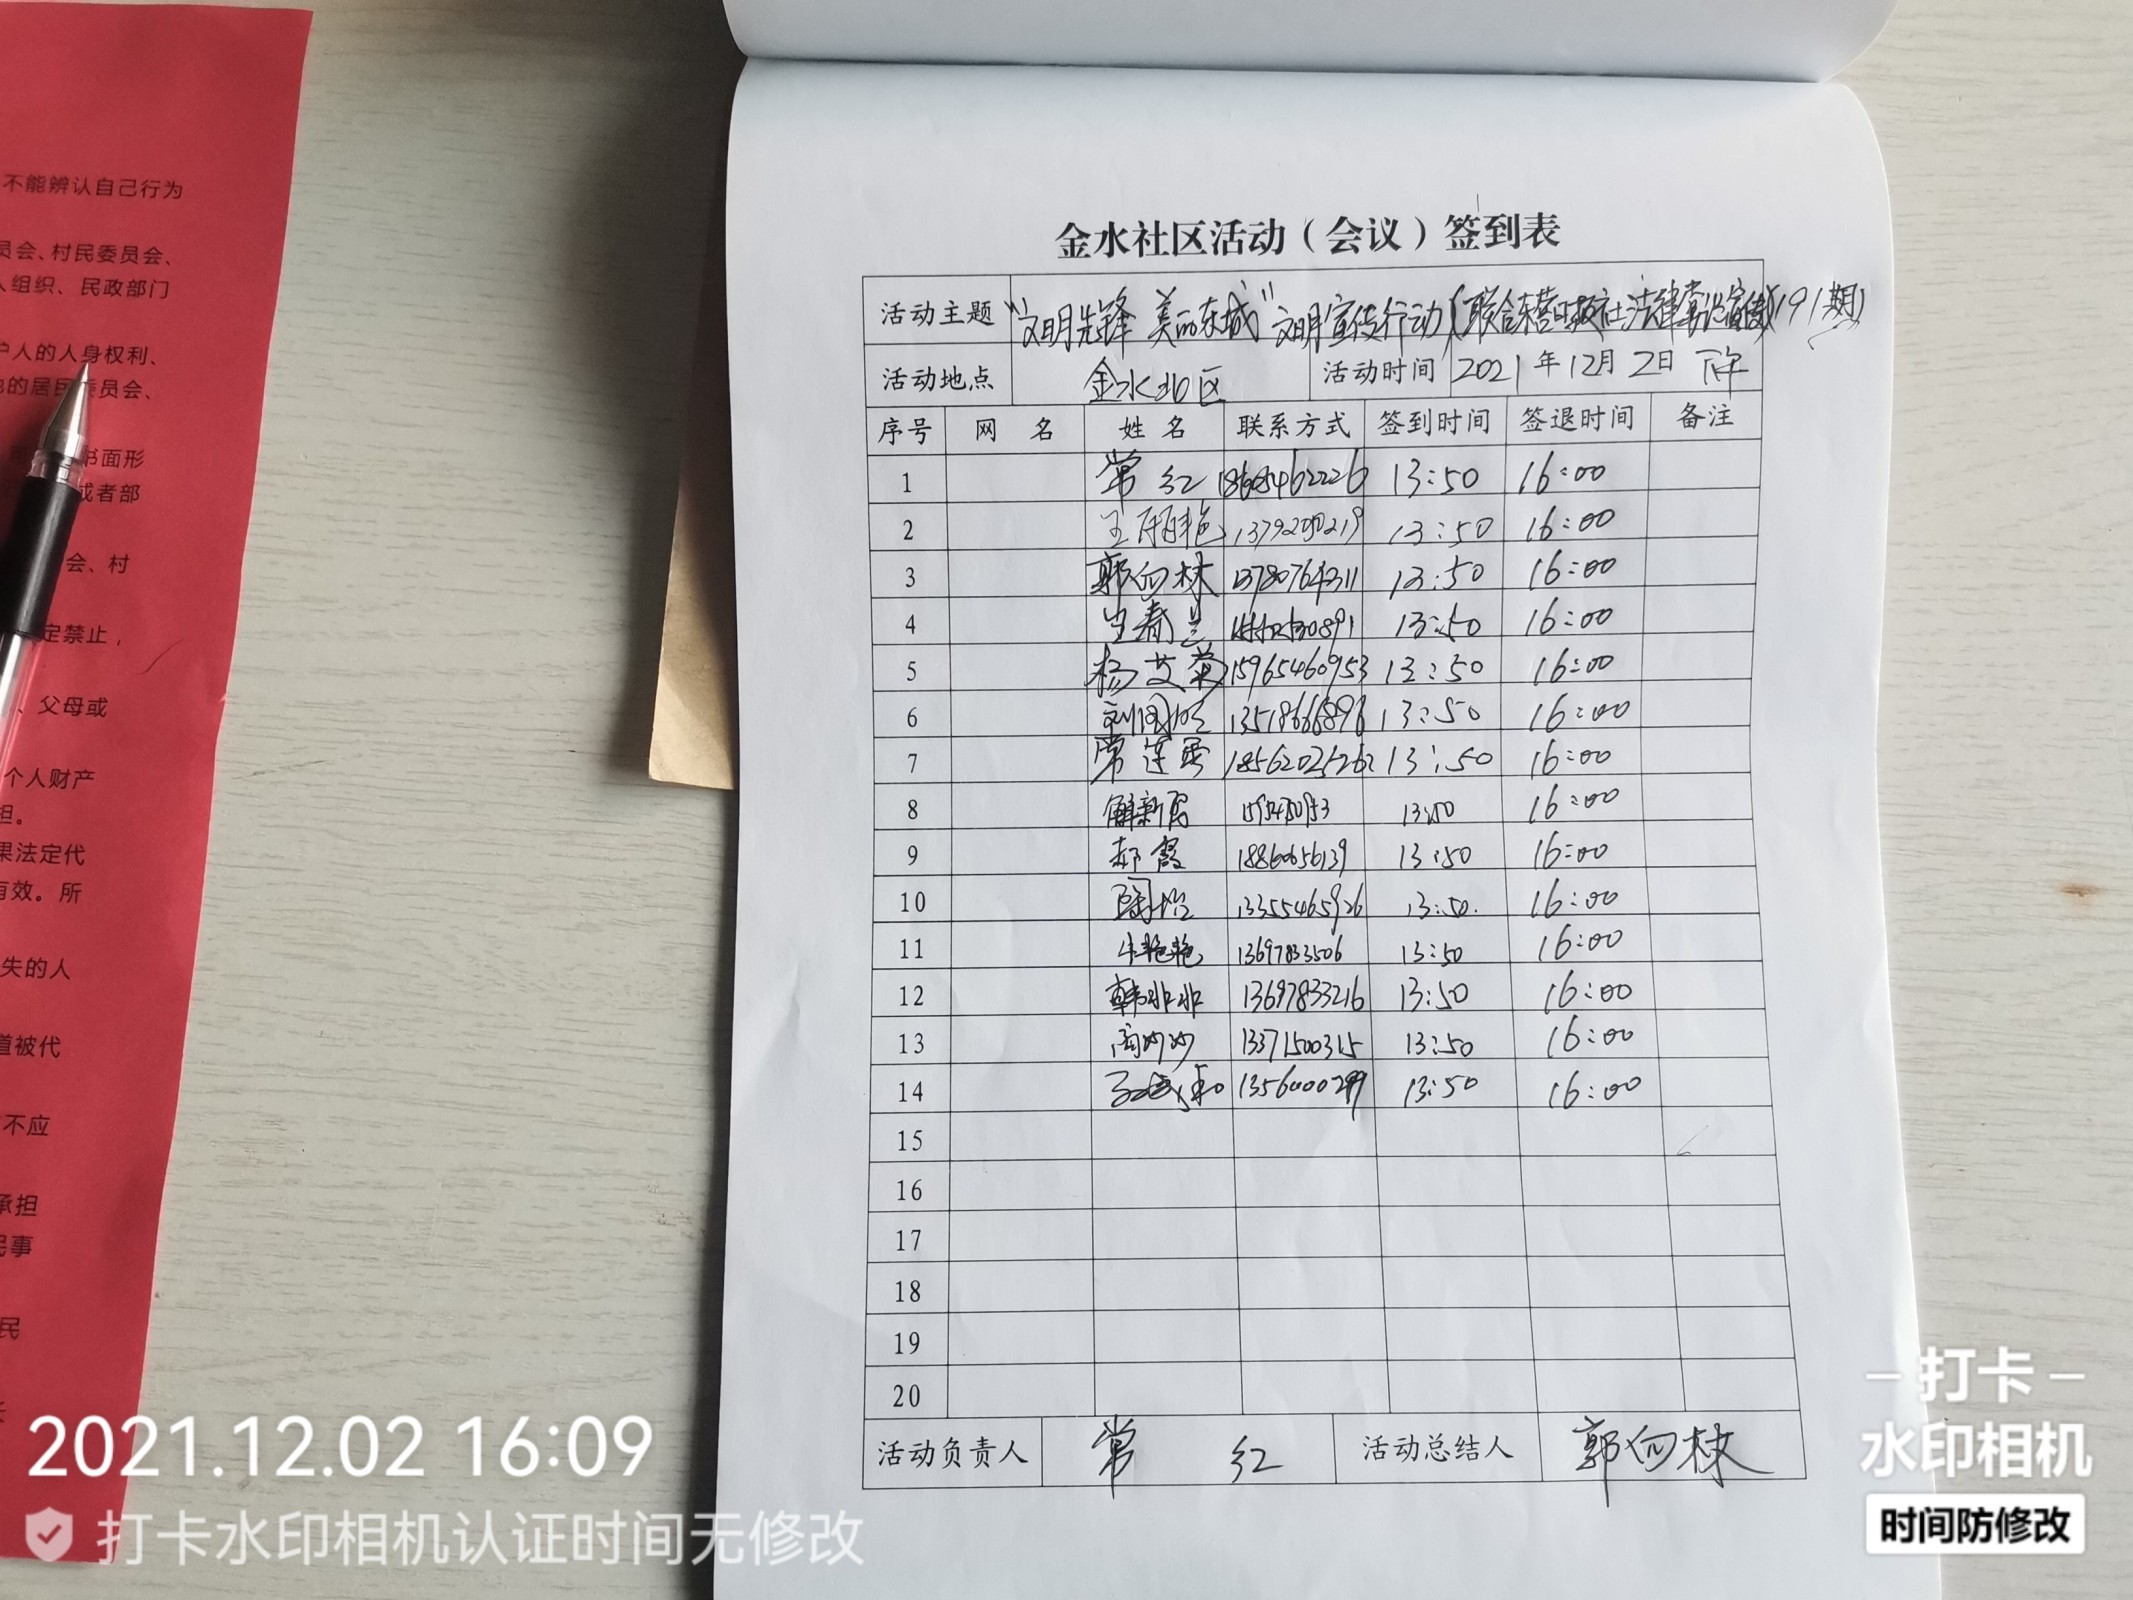 不能辨认自己行为
员会、村民委员会、
人组织、民政部门
户人的人身权利、
的居民委员会、
书面形
或者部
会、村
定禁止，
、父母或
个人财产
担。
果法定代
有效。所
失的人
道被代
不应
承担
民事
民
金水社区活动（会议）签到表
活动主题 "文明先锋 美丽东城"文明宣传行动(联合东营日报社法律常识宣传)(191期)
活动地点 金水北区 活动时间 2021年12月2日 下午
序号 网 名 姓 名 联系方式 签到时间 签退时间 备注
1 常 红 18605462226 13:50 16:00
2 13:50 16:00
3 郭向林 13780764311 13:50 16:00
4 13:50 16:00
5 杨艾菊 15965460953 13:50 16:00
6 13518666896 13:50 16:00
7 常莲雪 13:50 16:00
8 13:50 16:00
9 郝霞 13:50 16:00
10 13355465926 13:50. 16:00
11 牛艳艳 13697833506 13:50 16:00
12 韩非非 13697833216 13:50 16:00
13 商沙沙 13371500315 13:50 16:00
14 13:50 16:00
15
16
17
18
19
20
活动负责人 常 红 活动总结人 郭向林
2021.12.02 16:09
打卡水印相机认证时间无修改
打卡
水印相机
时间防修改